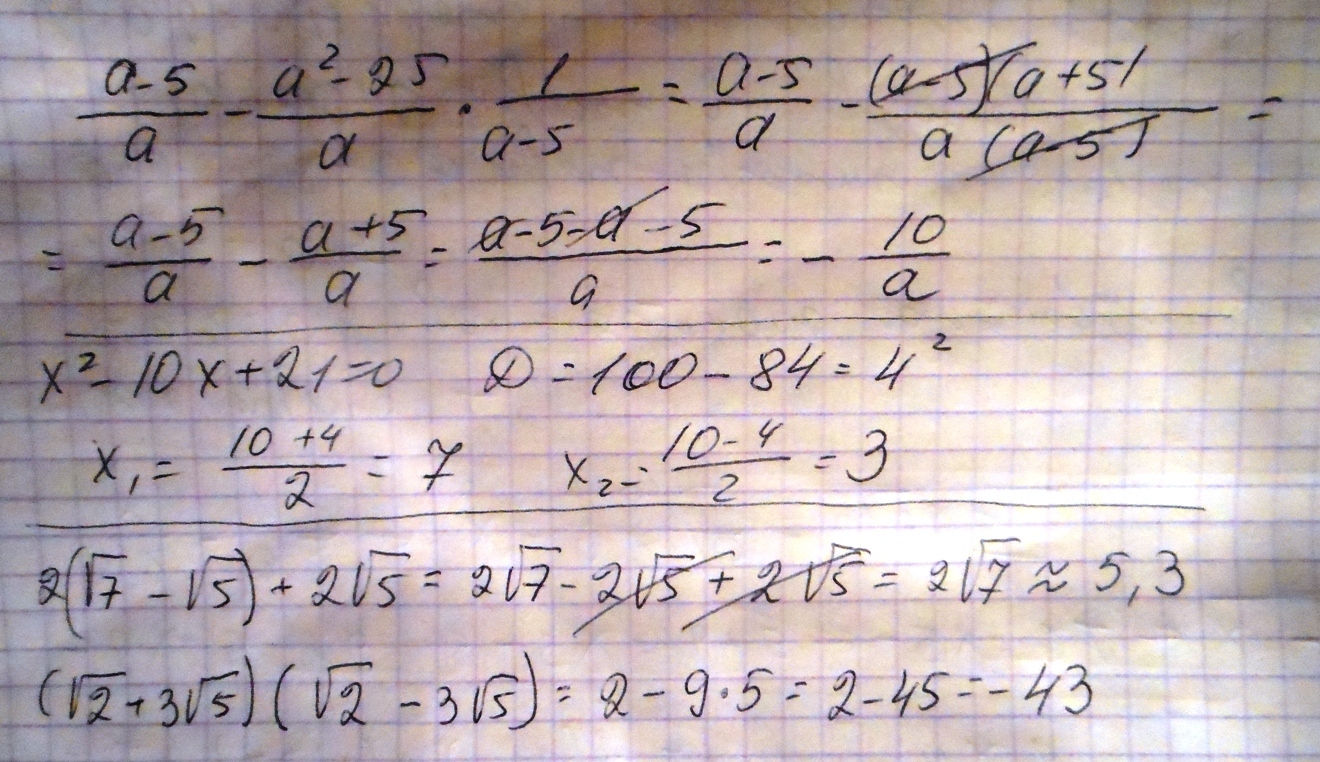 (a-5)/a - (a²-25)/a · 1/(a-5) = (a-5)/a - (a-5)(a+5)/(a(a-5)) =
= (a-5)/a - (a+5)/a = (a-5-a-5)/a = - 10/a
x² - 10x + 21 = 0 D = 100 - 84 = 4²
x₁ = (10+4)/2 = 7 x₂ = (10-4)/2 = 3
2(√7 - √5) + 2√5 = 2√7 - 2√5 + 2√5 = 2√7 ≈ 5,3
(√2 + 3√5)(√2 - 3√5) = 2 - 9·5 = 2 - 45 = -43